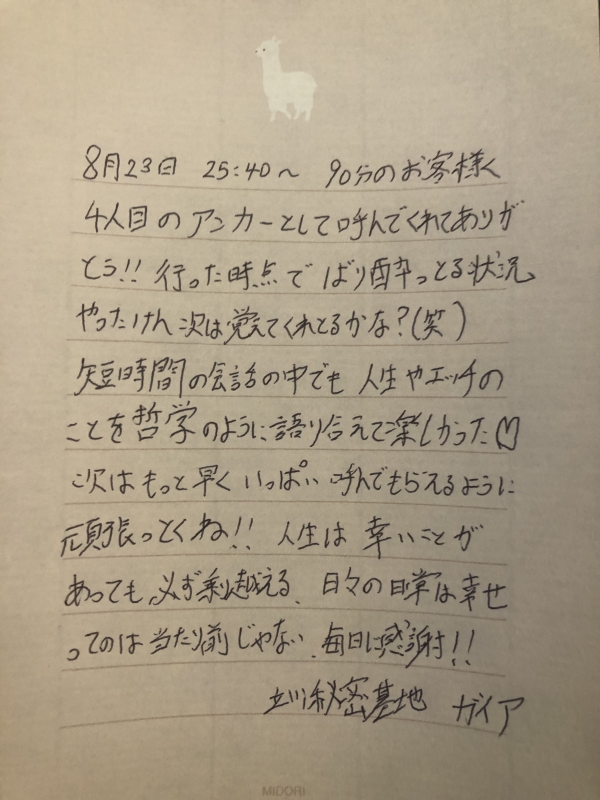 8月23日 25:40〜 90分のお客様へ
4人目のアンカーとして呼んでくれてありが
とう!! 行った時点でばり酔っとる状況
やったけん次は覚えてくれとるかな?(笑)
短時間の会話の中でも 人生やエッチの
ことを哲学のように語り合えて楽しかった♡
次はもっと早くいっぱい呼んでもらえるように
頑張っとくね!! 人生は 辛いことが
あっても、必ず乗り越える、日々の日常は幸せ
ってのは当たり前じゃない、毎日に感謝!!
立川秘密基地 ガイア
MIDORI